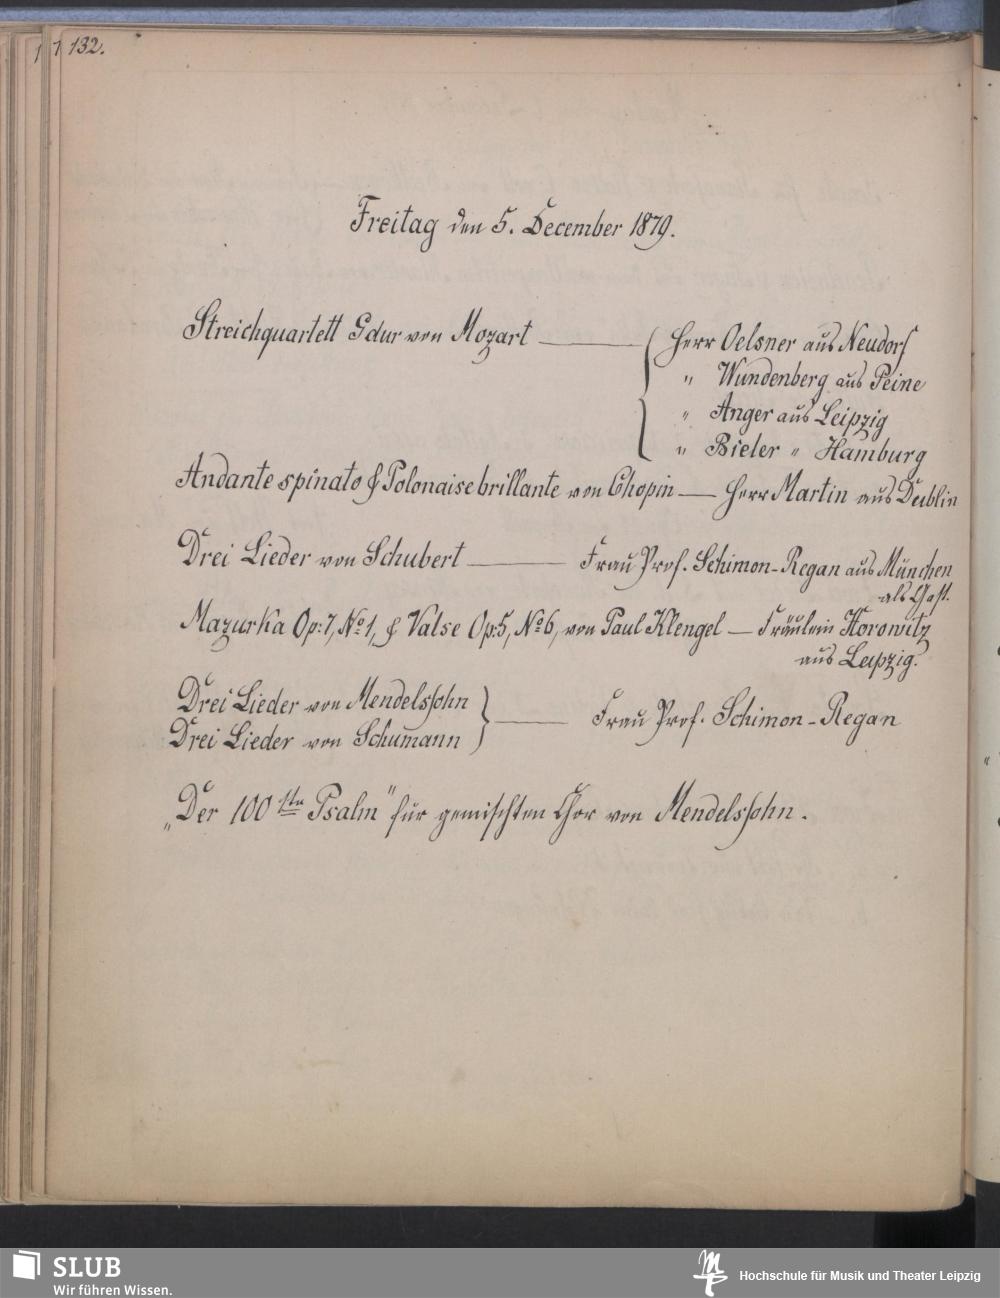 132.
Freitag den 5. December 1879.
Streichquartett Gdur von Mozart — Herr Oelsner aus Neudorf
" Wundenberg aus Peine
" Anger aus Leipzig
" Bieler " Hamburg
Andante spinato & Polonaise brillante von Chopin — Herr Martin aus Dublin
Drei Lieder von Schubert — Frau Prof. Schimon-Regan aus München
als Gast.
Mazurka Op: 7, No 1, & Valse Op: 5, No 6, von Paul Klengel — Fräulein Horowitz
aus Leipzig.
Drei Lieder von Mendelssohn
Drei Lieder von Schumann — Frau Prof. Schimon-Regan
„Der 100ste Psalm" für gemischten Chor von Mendelssohn.
SLUB
Wir führen Wissen.
Hochschule für Musik und Theater Leipzig